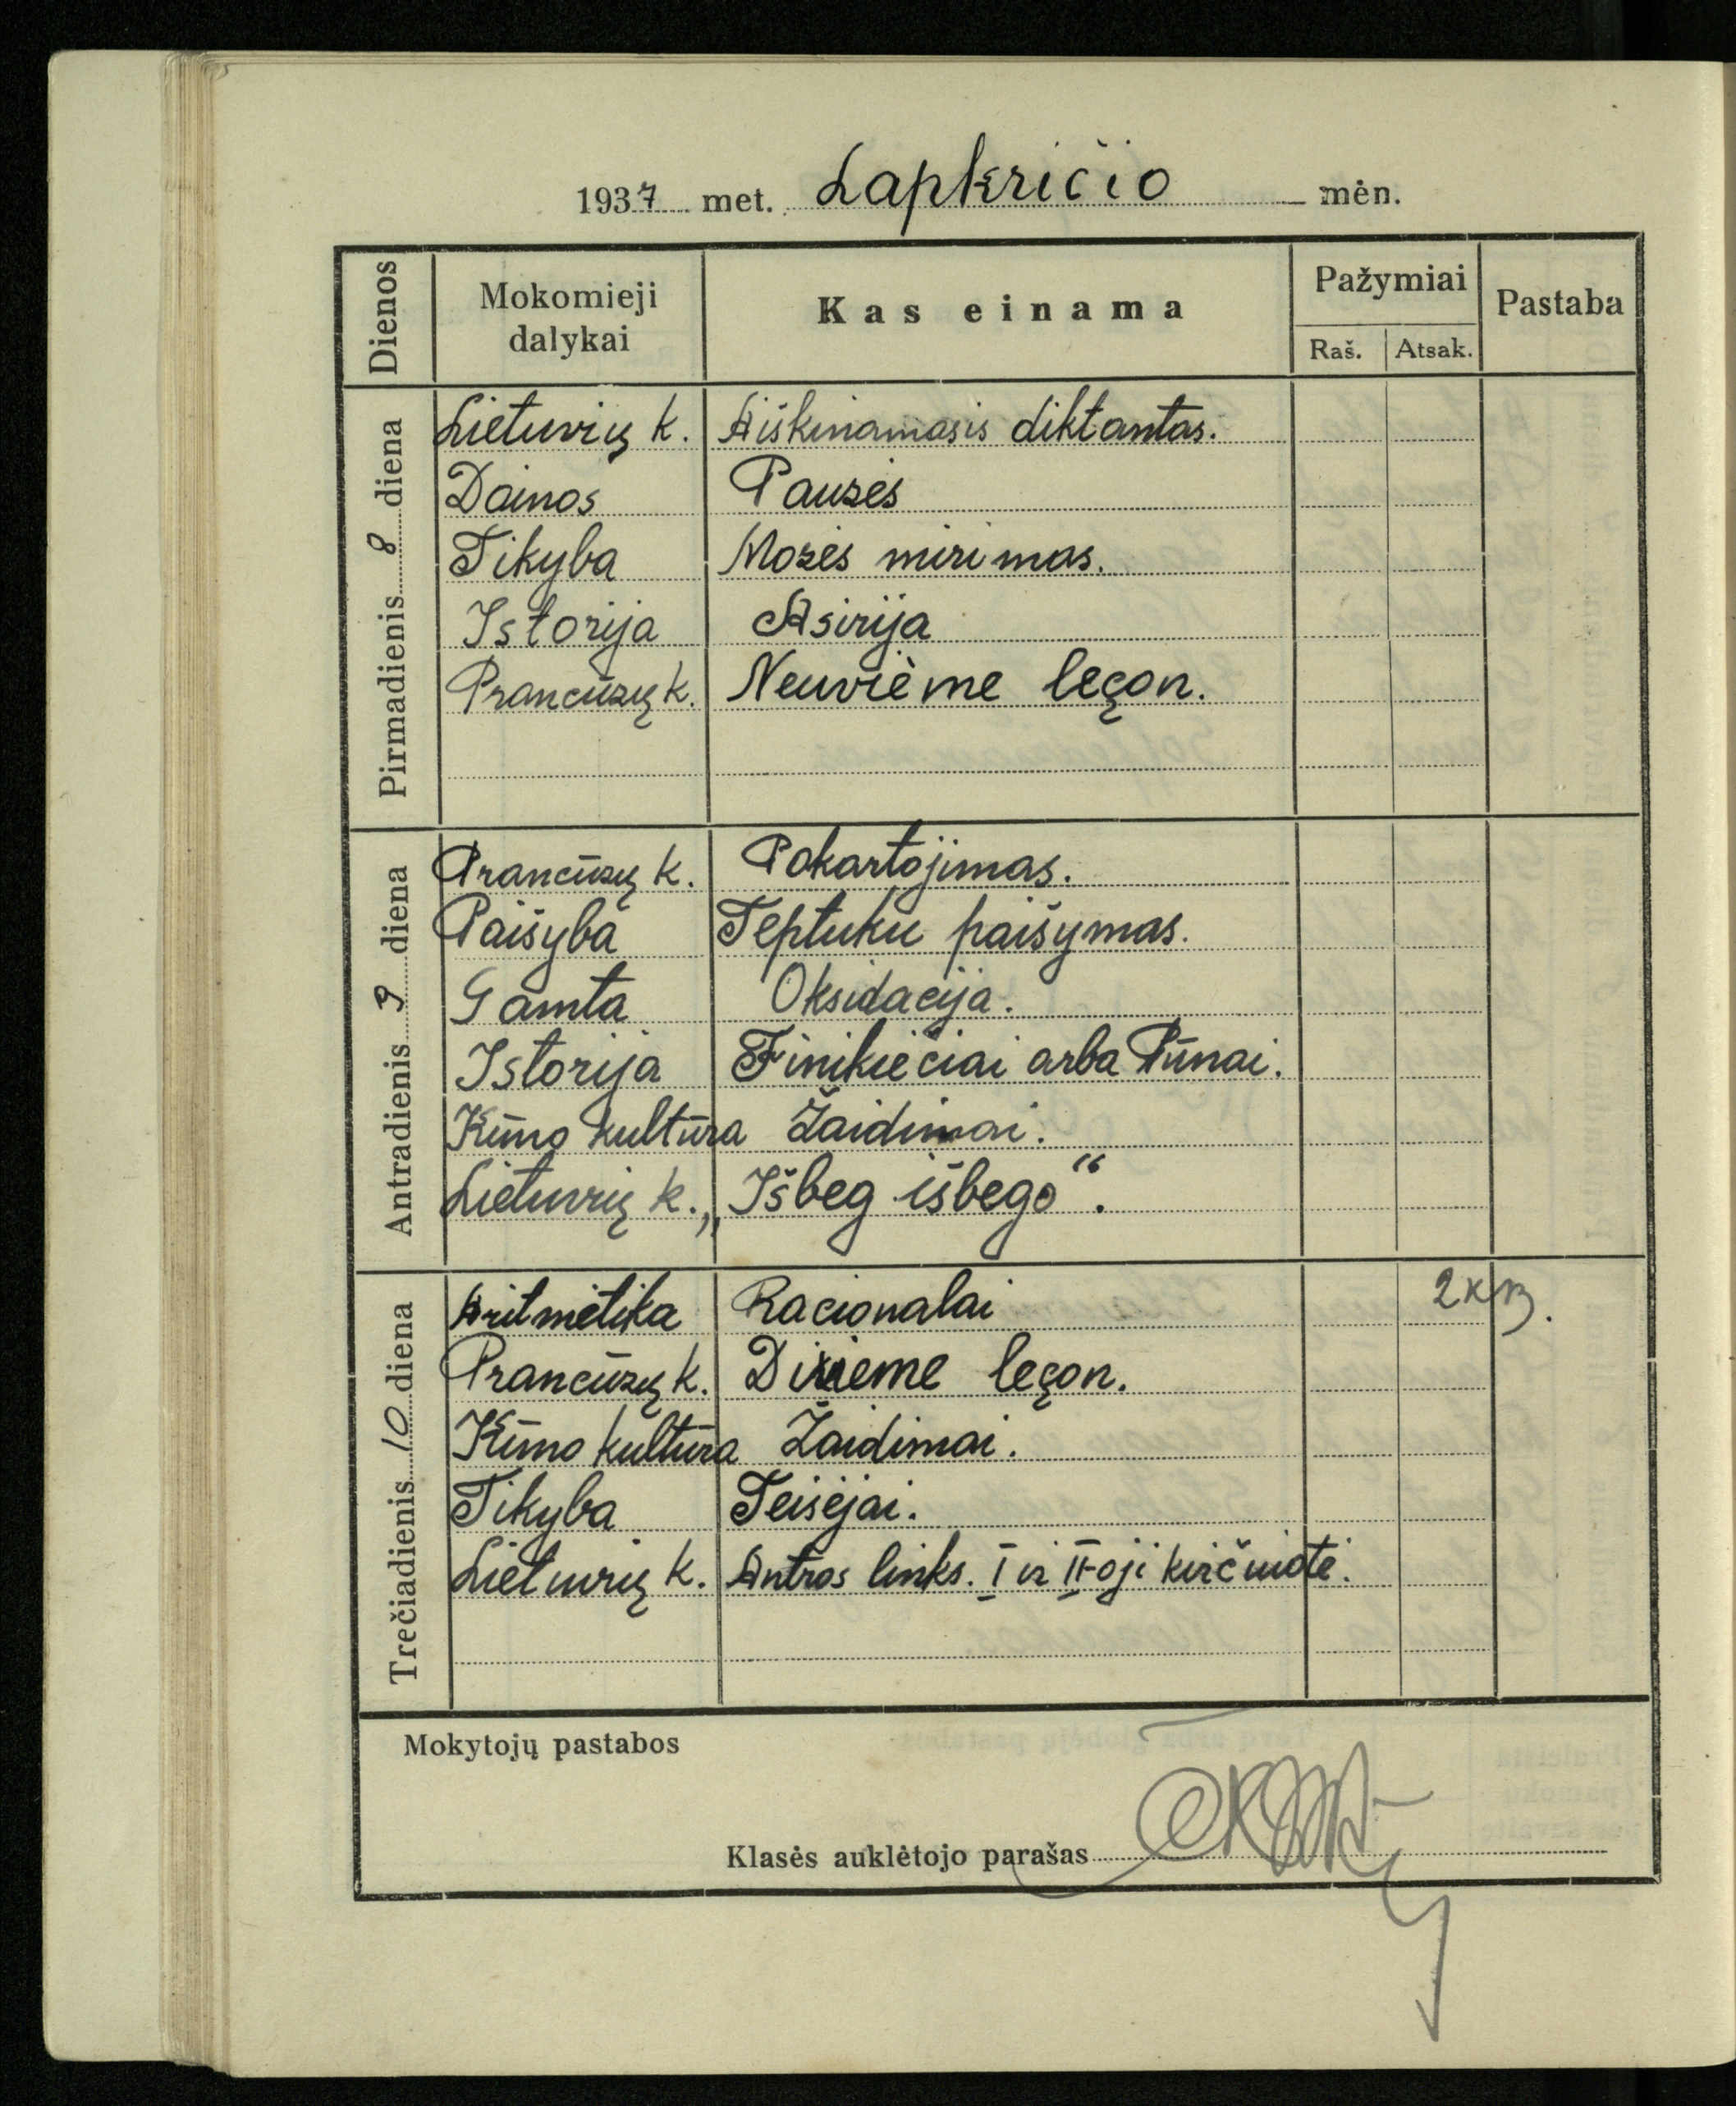 1937 met. Lapkričio mėn.
Dienos Mokomieji dalykai Kas einama Pažymiai Pastaba
Raš. Atsak.
Pirmadienis 8 diena
Lietuvių k. Aiškinamasis diktantas.
Dainos Pauzės
Tikyba Mozės mirimas.
Istorija Asirija
Prancūzų k. Neuvième leçon.
Antradienis 9 diena
Prancūzų k. Pokartojimas.
Paišyba Teptuku paišymas.
Gamta Oksidacija.
Istorija Finikiečiai arba Pūnai.
Kūno kultūra Žaidimai.
Lietuvių k. „Išbeg išbego“.
Trečiadienis 10 diena
Aritmetika Racionalai
Prancūzų k. Dixieme leçon.
Kūno kultūra Žaidimai.
Tikyba Teisėjai.
Lietuvių k. Antros links. I ir II-oji kirčiuotė.
Mokytojų pastabos
Klasės auklėtojo parašas